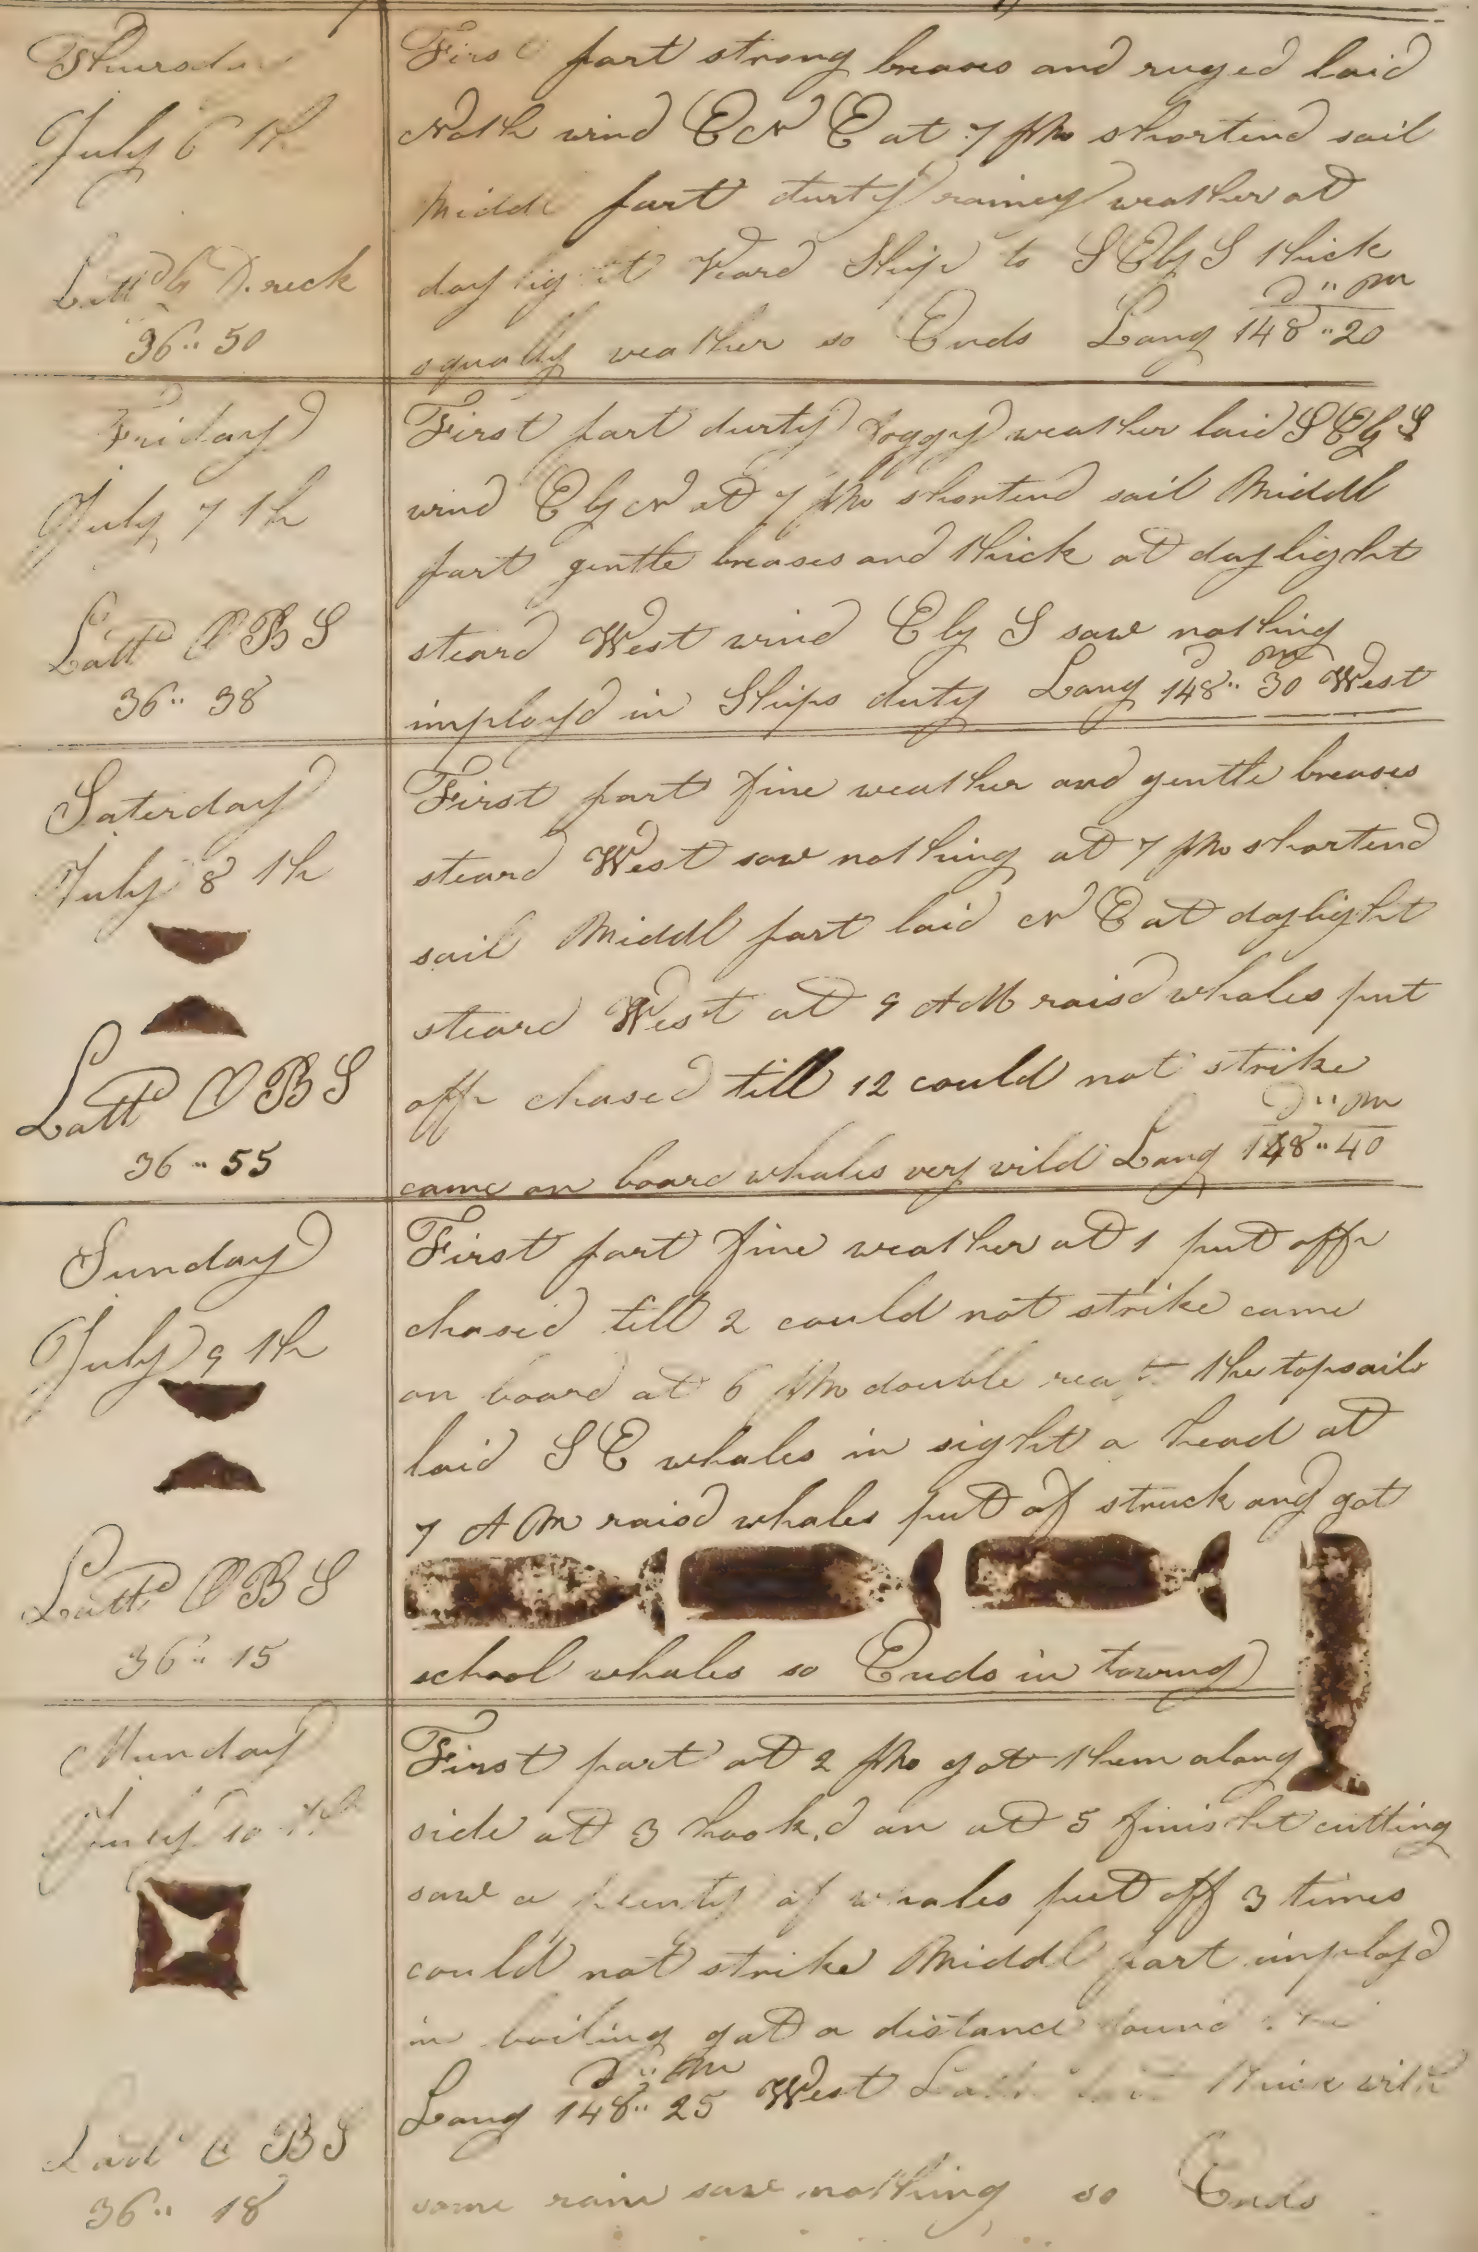 Thursda
July 6 th
Lattd by D.reck
36" 50
First part strong breases and ruged laid
North wind E N E at 7 PM shortend sail
Middl part durty rainey weather at
daylight Weard Ship to S E by S thick
D " M
squally weather so Ends Long 148" 20
Friday
July 7 th
Lattd OBS
36" 38
First part durty foggy weather laid S E by S
wind E by N at 7 PM shortend sail Middl
part gentle breases and thick at daylight
steard West wind E by S saw nothing
D M
imployd in Ships duty Long 148" 30 West
Saterday
July 8 th
Lattd OBS
36" 55
First part fine weather and gentle breases
steard West saw nothing at 7 PM shortend
sail Middl part laid N E at daylight
steard West at 9 AM raisd whales put
off chased till 12 could not strike
D " M
came on board whales very wild Long 148" 40
Sunday
July 9 th
Lattd OBS
36" 15
First part fine weather at 1 put off
chased till 2 could not strike came
on board at 6 PM double rea the topsails
laid S E whales in sight a head at
7 AM raisd whales put of struck and got
school whales so Ends in towing
Munday
July 10 th
Lattd OBS
36" 18
First part at 2 PM got them along
side at 3 hook,d on at 5 finisht cutting
saw a plenty of whales put off 3 times
could not strike Middl part imployd
in boiling got a distance
D " M
Long 148" 25 West thick with
some rain saw nothing so Ends